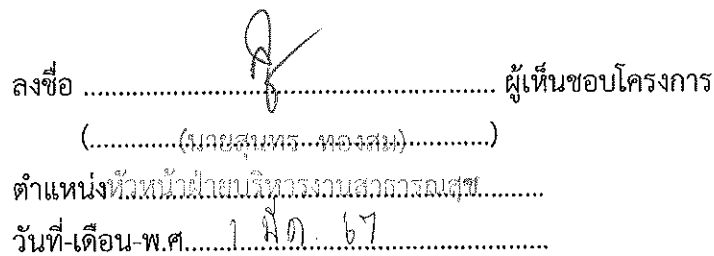 ลงชื่อ ................................................ ผู้เห็นชอบโครงการ
(............(นายสุนทร ทองสม)............)
ตำแหน่งหัวหน้าฝ่ายบริหารงานสาธารณสุข........
วันที่-เดือน-พ.ศ.....1 มี.ค. 67........................